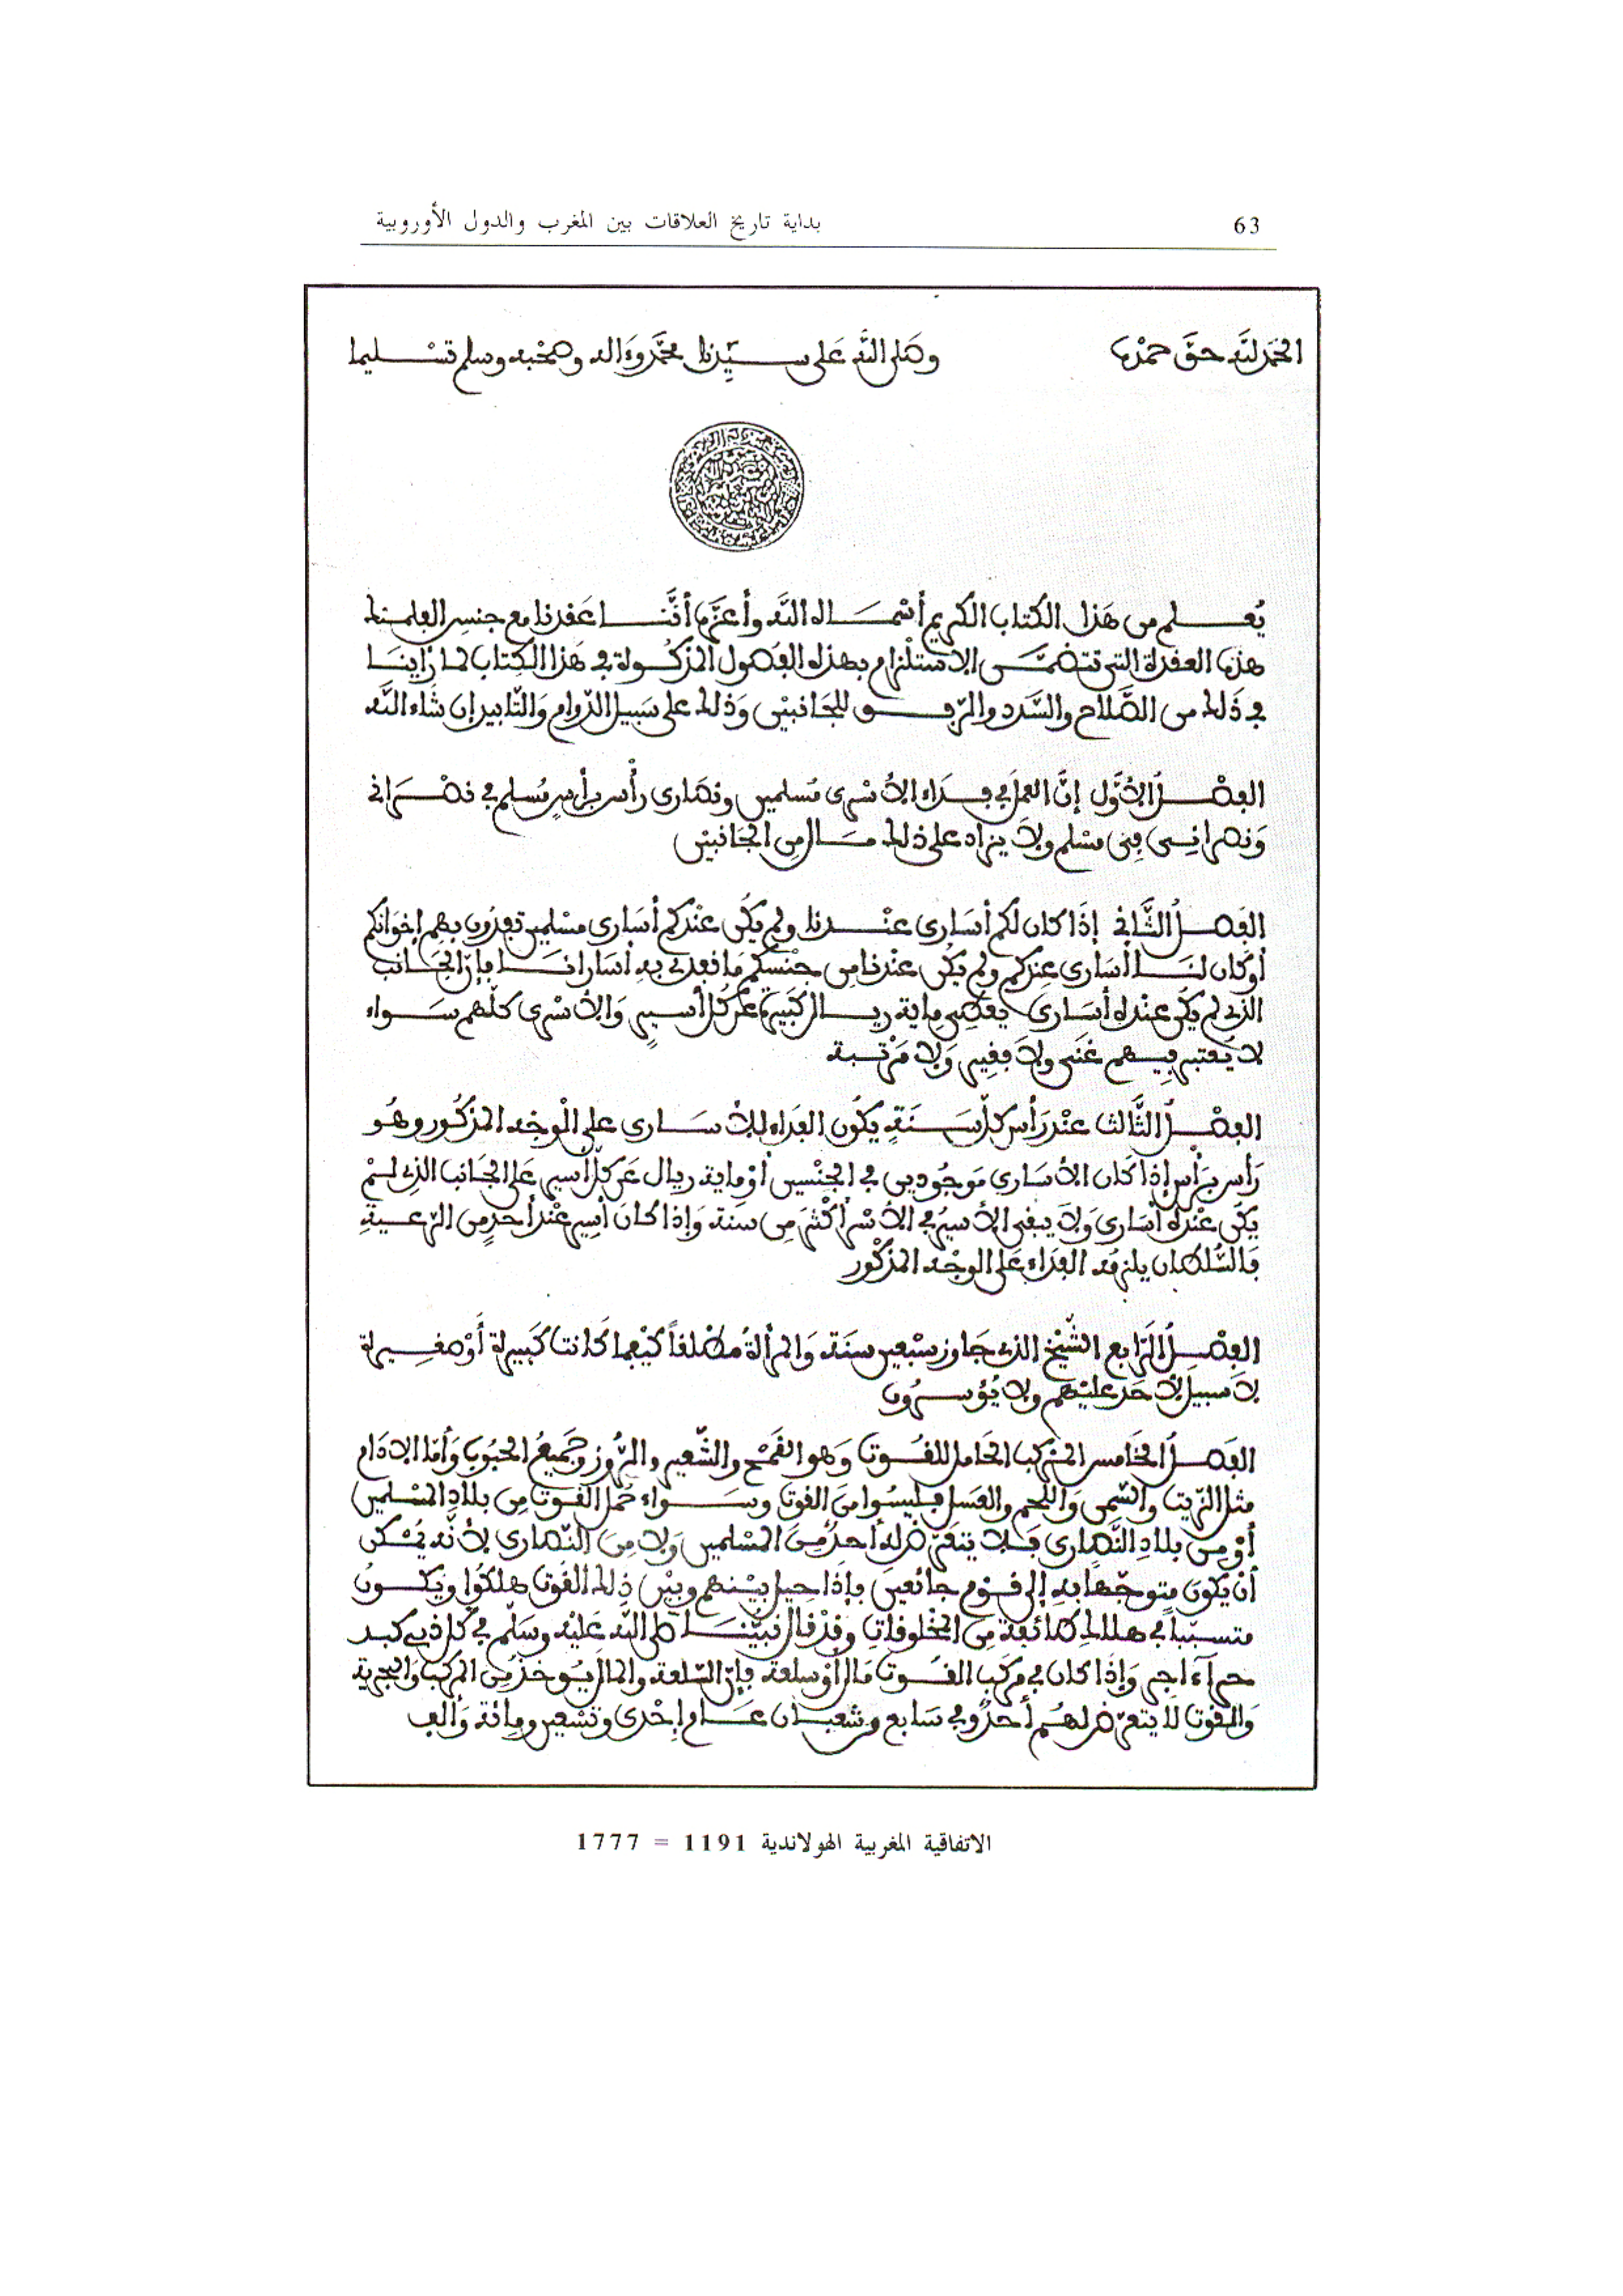 بداية تاريخ العلاقات بين المغرب والدول الأوروبية
63
الحمد لله حق حمده
وصلى الله على سيدنا محمد وءاله وصحبه وسلم تسليما
يُعلم من هذا الكتاب الكريم أسماه الله وأعزه أننا عقدنا مع جنس الفلمنك
هذه العقدة التي تتضمن الاستلزام بهذه الفصول المذكولة في هذا الكتاب لما رأينا
في ذلك من الصلاح والسدد والرفق للجانبين وذلك على سبيل الدوام والتابيد إن شاء الله
الفصل الأول إن العمل في فداء الأسرى مسلمين ونصارى رأس برأس مسلم في نصراني
ونصراني في مسلم ولا يزاد على ذلك مال من الجانبين
الفصل الثاني إذا كان لكم أسارى عندنا ولم يكن عندكم أسارى مسلمين تفدون بهم إخوانكم
أو كان لنا أسارى عندكم ولم يكن عندنا من جنسكم ما نفدي به أسارانا فإن الجانب
الذي لم يكن عنده أسارى يعطي ماية ريال كبيرة عن كل أسير والأسرى كلهم سواء
لا يعتبر فيهم غني ولا فقير ولا مرتبة
الفصل الثالث عند رأس كل سنة يكون الفداء للأسارى على الوجه المذكور وهو
رأس برأس إذا كان الأسارى موجودين في الجنسين أو ماية ريال عن كل أسير على الجانب الذي لم
يكن عنده أسارى ولا يبقى الأسير في الأسر أكثر من سنة وإذا كان أسير عند أحد من الرعية
فالسلطان يلزمه الفداء على الوجه المذكور
الفصل الرابع الشيخ الذي جاوز سبعين سنة والمرأة مطلقاً كيفما كانت كبيرة أو صغيرة
لا سبيل لأحد عليهم ولا يُؤسرون
الفصل الخامس المركب الحامل للقوت وهو القمح والشعير والروز وجميع الحبوب وأما الادام
مثل الزيت والسمن واللحم والعسل فليسوا من القوت وسواء حمل القوت من بلاد المسلمين
أو من بلاد النصارى فلا يتعرض له أحد من المسلمين ولا من النصارى لأنه يمكن
أن يكون متوجها به إلى قوم جائعين فإذا حيل بينهم وبين ذلك القوت هلكوا ويكون
متسببا في هلاك طائفة من المخلوقات وقد قال نبينا صلى الله عليه وسلم في كل ذي كبد
حرآء اجر وإذا كان في مركب القوت مال أو سلعة فإن السلعة والمال يوخذ من المركب والبحرية
والقوت لا يتعرض لهم أحد وفي سابع شعبان عام إحدى وتسعين ومائة وألف
الاتفاقية المغربية الهولاندية 1191 = 1777